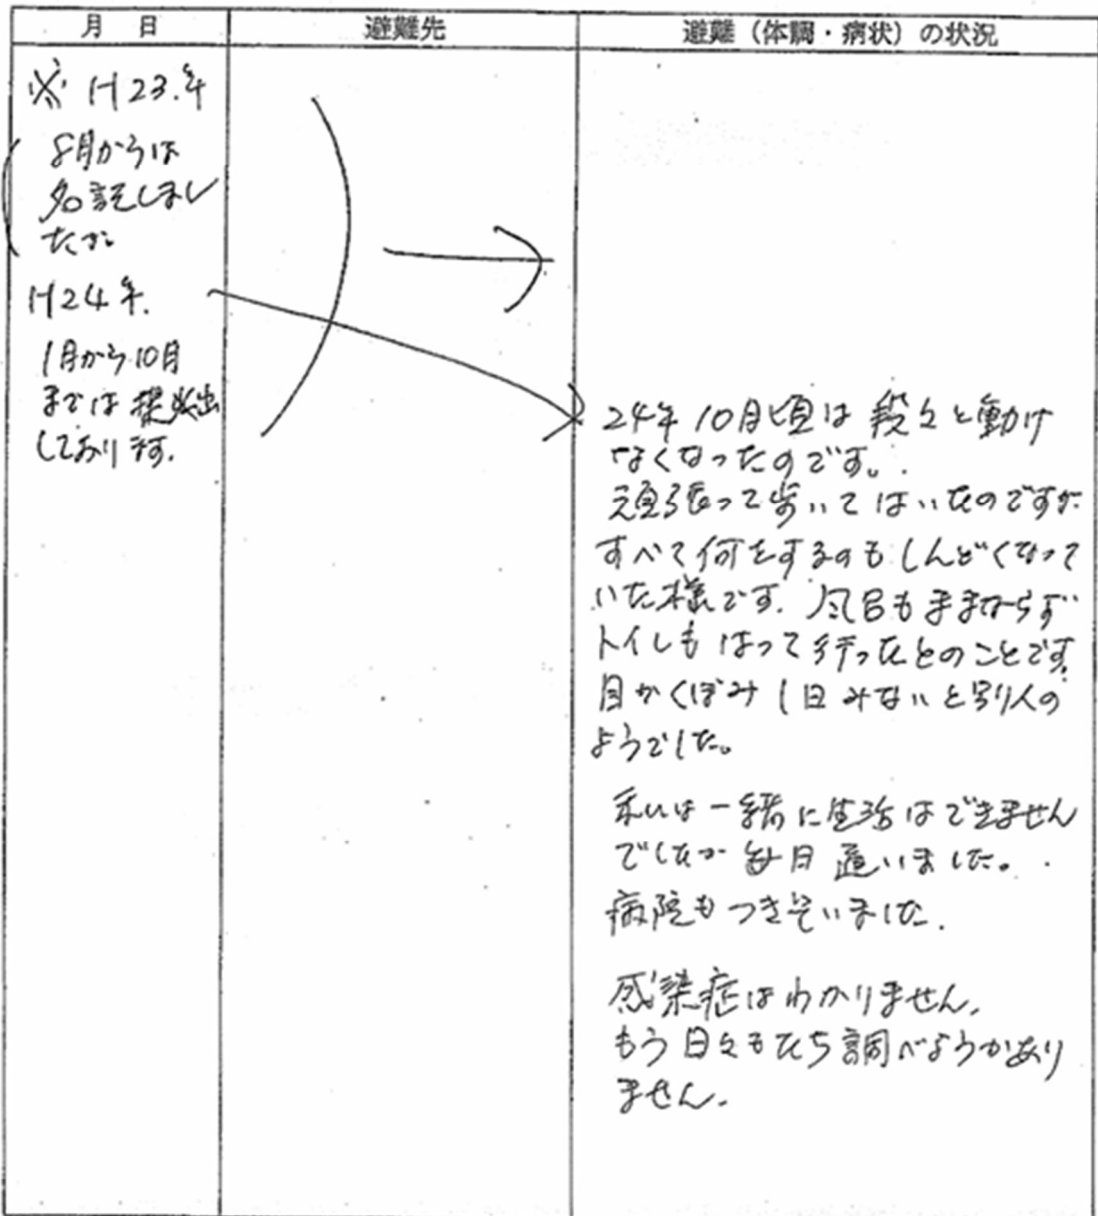 月 日
避難先
避難（体調・病状）の状況
※ H23.年
8月からは
記しまし
たが
H24年.
1月から10月
までは 提出
しております.
24年10月頃は 段々と動け
なくなったのです。
頑張って歩いてはいたのですが
すべて何をするのもしんどくなって
いた様です. 風呂もままならず
トイレもはって行ったとのことです.
目がくぼみ 1日みないと別人の
ようでした。
私は一緒に生活はできません
でしたが毎日通いました。
病院もつきそいました.
感染症はわかりません.
もう日々もたち調べようがあり
ません.